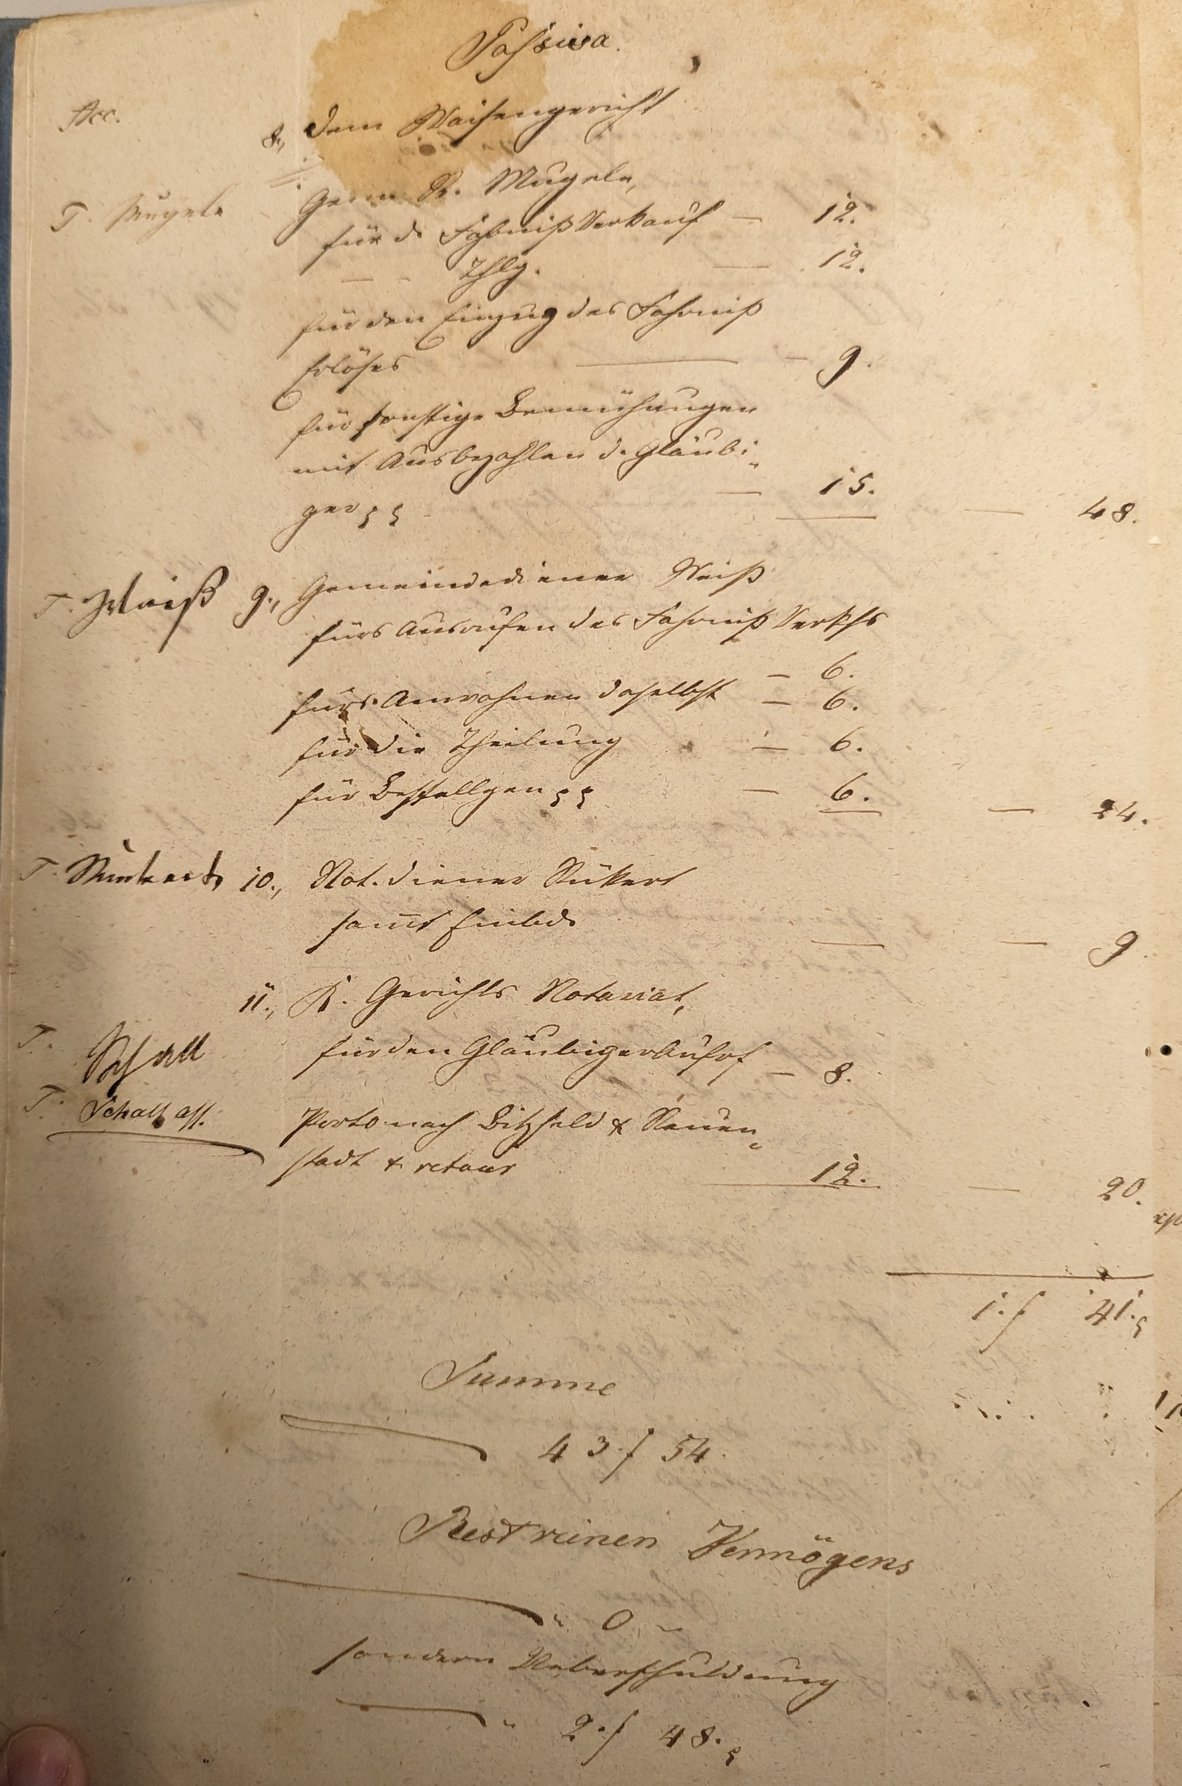 Passiva.
Acc.
8., dem Waisengericht
T. Mugele Gem. R. Mugele,
für d. Fahrniß Verkauf — 12.
— — Thlg. — 12.
für den Einzug des Fahrniß
Erlöses — 9.
für sonstige Bemühungen
mit Ausbezahlen d. Gläubi-
ger — 15. — 48.
T. Weiß 9., Gemeindediener Weiß
fürs Ausrufen des Fahrniß Verkfs
— 6.
fürs Anwohnen daselbst — 6.
für die Theilung — 6.
für Bestellgen — 6. — 24.
T. 10., Not. diener Rükert
samt — 9
11., K. Gerichts Notariat,
T. Schall für den Gläubigeraufruf — 8.
T. Schall ass. Porto nach Bitzfeld & Neuen-
stadt & retour 12. — 20.
1. f 41.
Summe
43 f 54.
Rest reinen Vermögens
" 0 "
sondern Ueberschuldung
" 2. f 48.